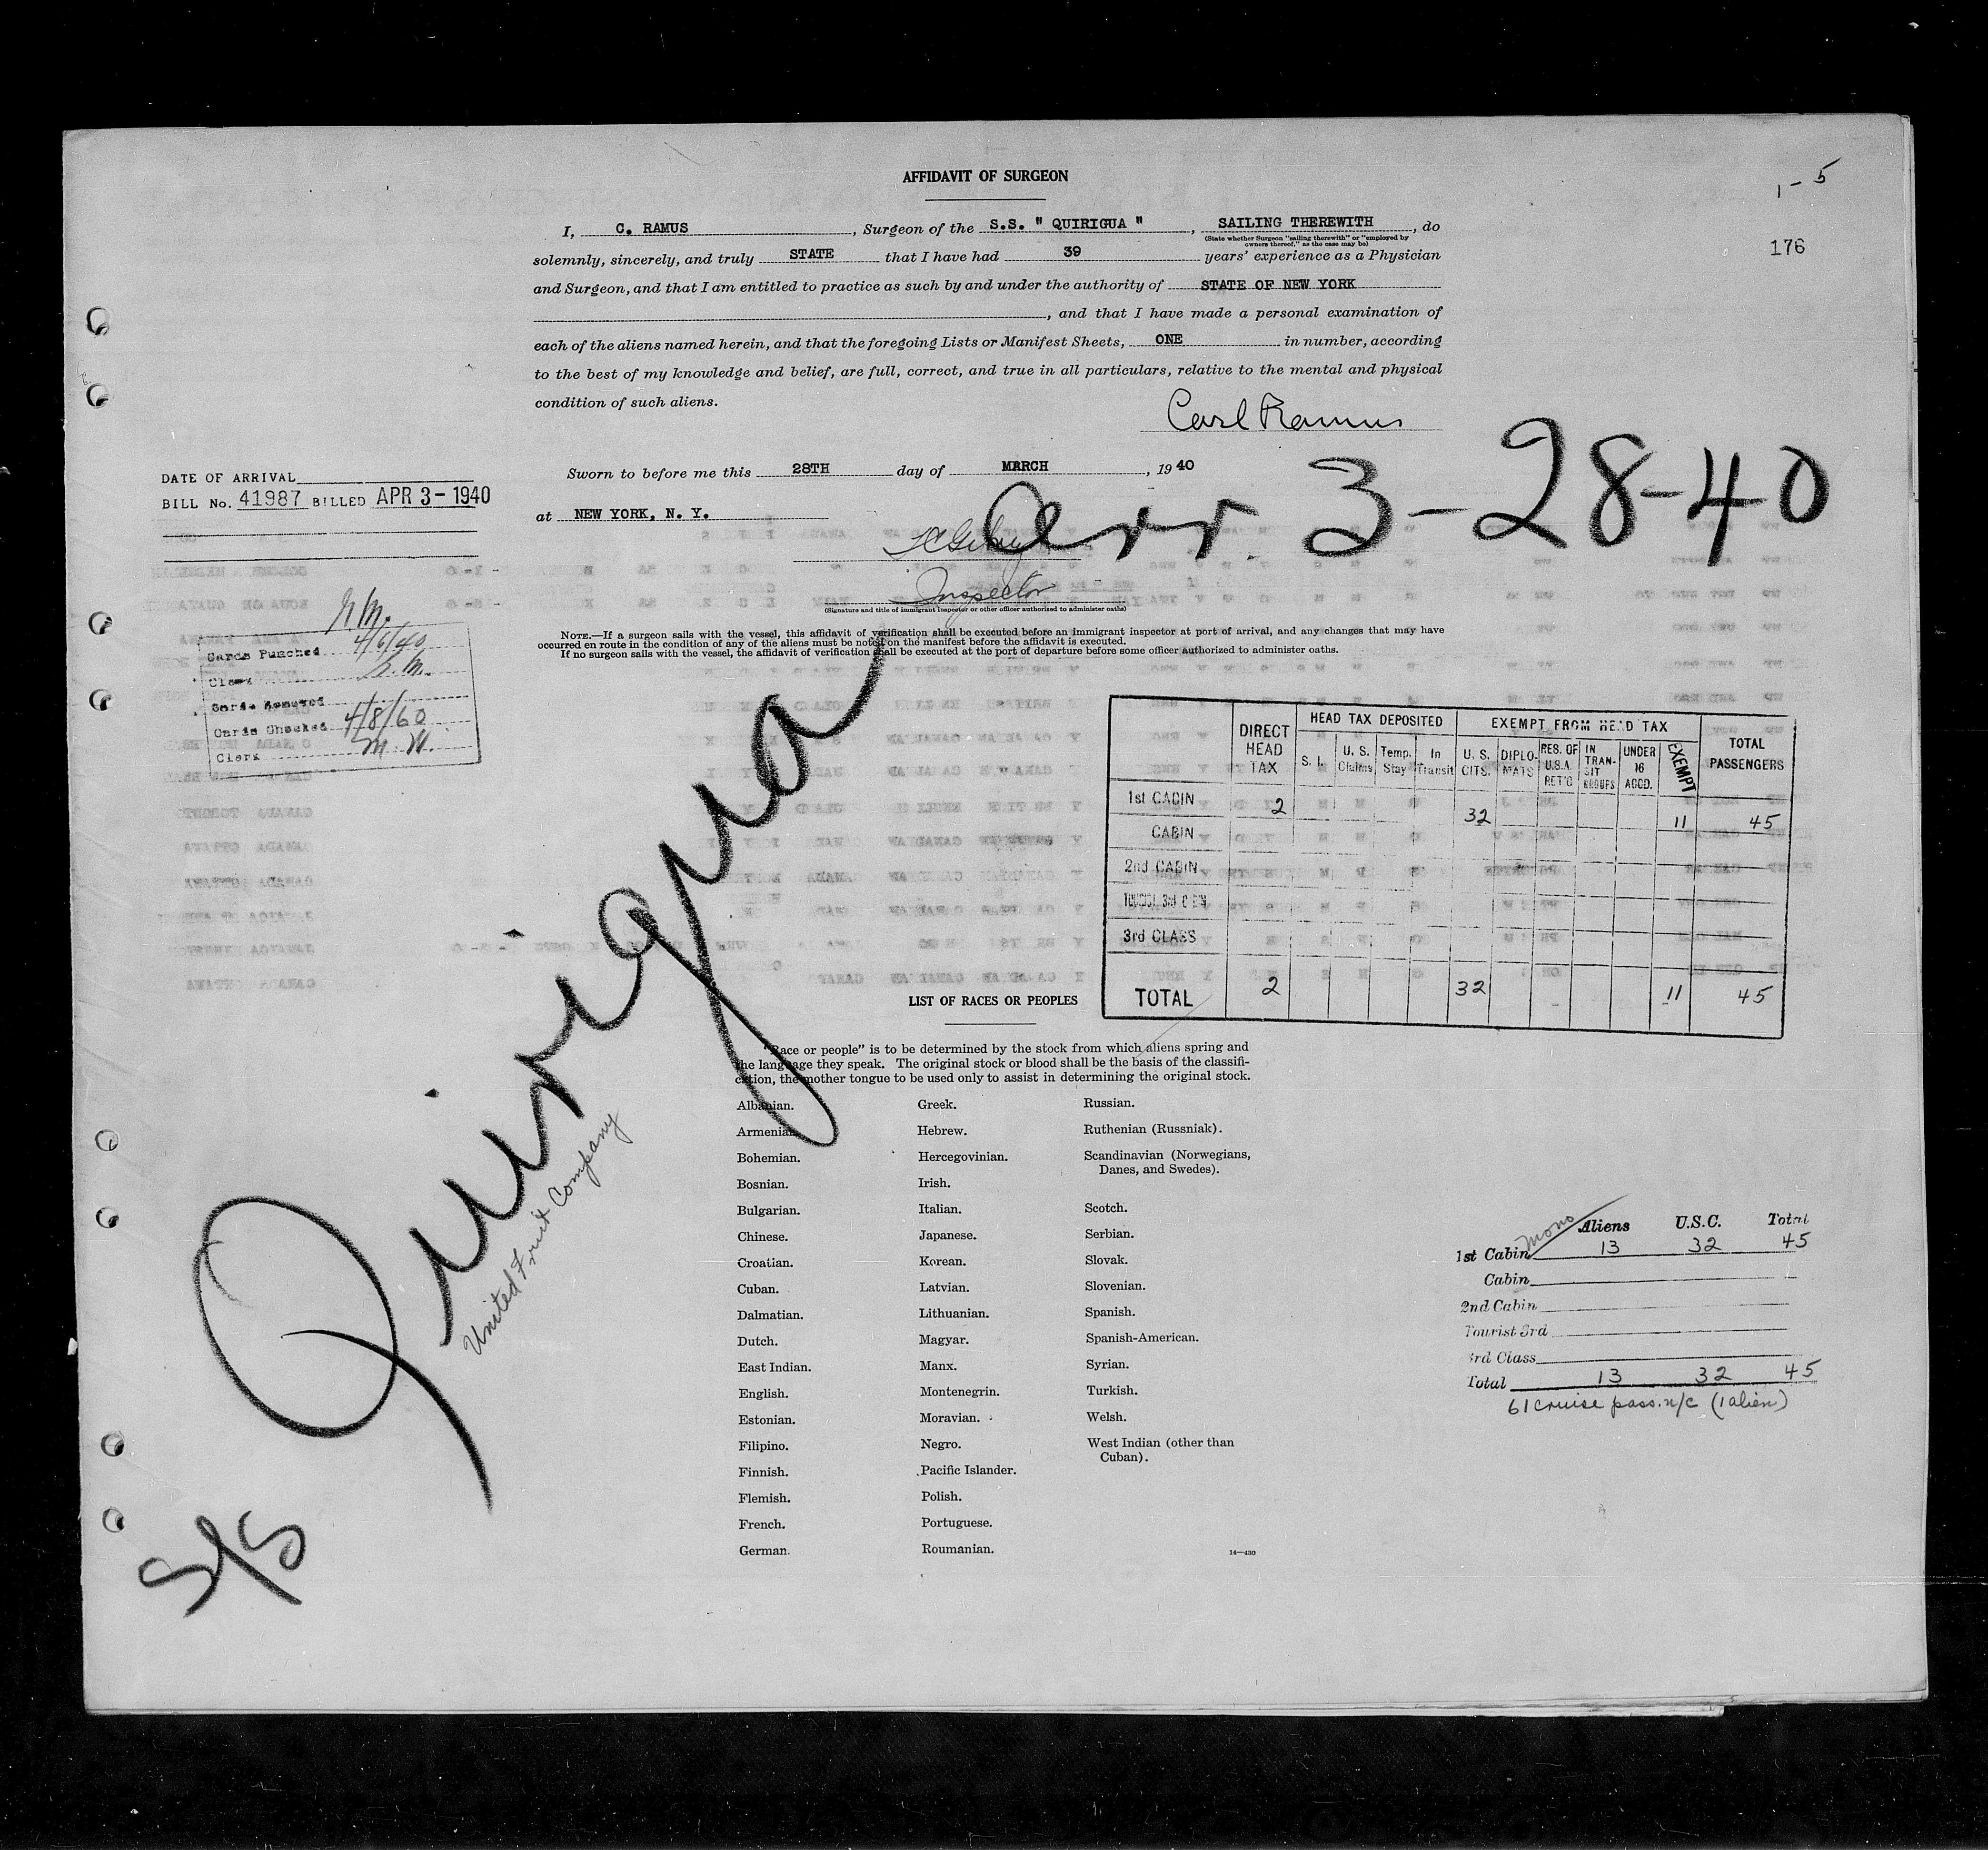 AFFIDAVIT OF SURGEON
1-5
176
I, C. RAMUS, Surgeon of the S.S. " QUIRIGUA ", SAILING THEREWITH, do
(State whether Surgeon "sailing therewith" or "employed by owners thereof," as the case may be)
solemnly, sincerely, and truly STATE that I have had 39 years' experience as a Physician
and Surgeon, and that I am entitled to practice as such by and under the authority of STATE OF NEW YORK
, and that I have made a personal examination of
each of the aliens named herein, and that the foregoing Lists or Manifest Sheets, ONE in number, according
to the best of my knowledge and belief, are full, correct, and true in all particulars, relative to the mental and physical
condition of such aliens.
Carl Ramus
Sworn to before me this 28TH day of MARCH, 1940
at NEW YORK, N. Y.
Arr. 3-28-40
Inspector
(Signature and title of immigrant inspector or other officer authorized to administer oaths)
NOTE.—If a surgeon sails with the vessel, this affidavit of verification shall be executed before an immigrant inspector at port of arrival, and any changes that may have
occurred en route in the condition of any of the aliens must be noted on the manifest before the affidavit is executed.
If no surgeon sails with the vessel, the affidavit of verification shall be executed at the port of departure before some officer authorized to administer oaths.
DATE OF ARRIVAL
BILL No. 41987 BILLED APR 3-1940
Cards Punched 4/6/40
Clerk
Cards Removed
Cards Checked 4/8/60
Clerk M. W.
DIRECT HEAD TAX
HEAD TAX DEPOSITED
EXEMPT FROM HEAD TAX
TOTAL PASSENGERS
S. I.
U. S. Claims
Temp. Stay
In Transit
U. S. CITS.
DIPLO-MATS
RES. OF U.S.A. RET'G
IN TRAN-SIT GROUPS
UNDER 16 ACCD.
EXEMPT
1st CABIN 2 32 11 45
CABIN
2nd CABIN
3rd CLASS
TOTAL 2 32 11 45
S/S Quirigua
United Fruit Company
LIST OF RACES OR PEOPLES
"Race or people" is to be determined by the stock from which aliens spring and
the language they speak. The original stock or blood shall be the basis of the classifi-
cation, the mother tongue to be used only to assist in determining the original stock.
Albanian.
Armenian.
Bohemian.
Bosnian.
Bulgarian.
Chinese.
Croatian.
Cuban.
Dalmatian.
Dutch.
East Indian.
English.
Estonian.
Filipino.
Finnish.
Flemish.
French.
German.
Greek.
Hebrew.
Hercegovinian.
Irish.
Italian.
Japanese.
Korean.
Latvian.
Lithuanian.
Magyar.
Manx.
Montenegrin.
Moravian.
Negro.
Pacific Islander.
Polish.
Portuguese.
Roumanian.
Russian.
Ruthenian (Russniak).
Scandinavian (Norwegians,
Danes, and Swedes).
Scotch.
Serbian.
Slovak.
Slovenian.
Spanish.
Spanish-American.
Syrian.
Turkish.
Welsh.
West Indian (other than
Cuban).
14—430
Mono
Aliens U.S.C. Total
1st Cabin 13 32 45
Cabin
2nd Cabin
Tourist 3rd
3rd Class
Total 13 32 45
61 cruise pass. n/c (1 alien)